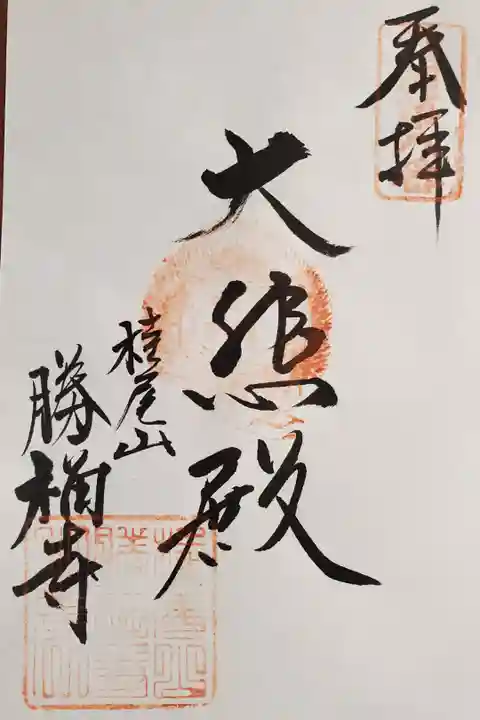 奉拝
大悲殿
桂尾山
勝楠寺